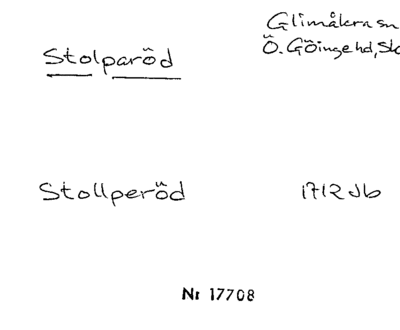 Stolparöd
Glimåkra sn
Ö. Göinge hd,
Stollperöd
1712 Jb
Nr 17708